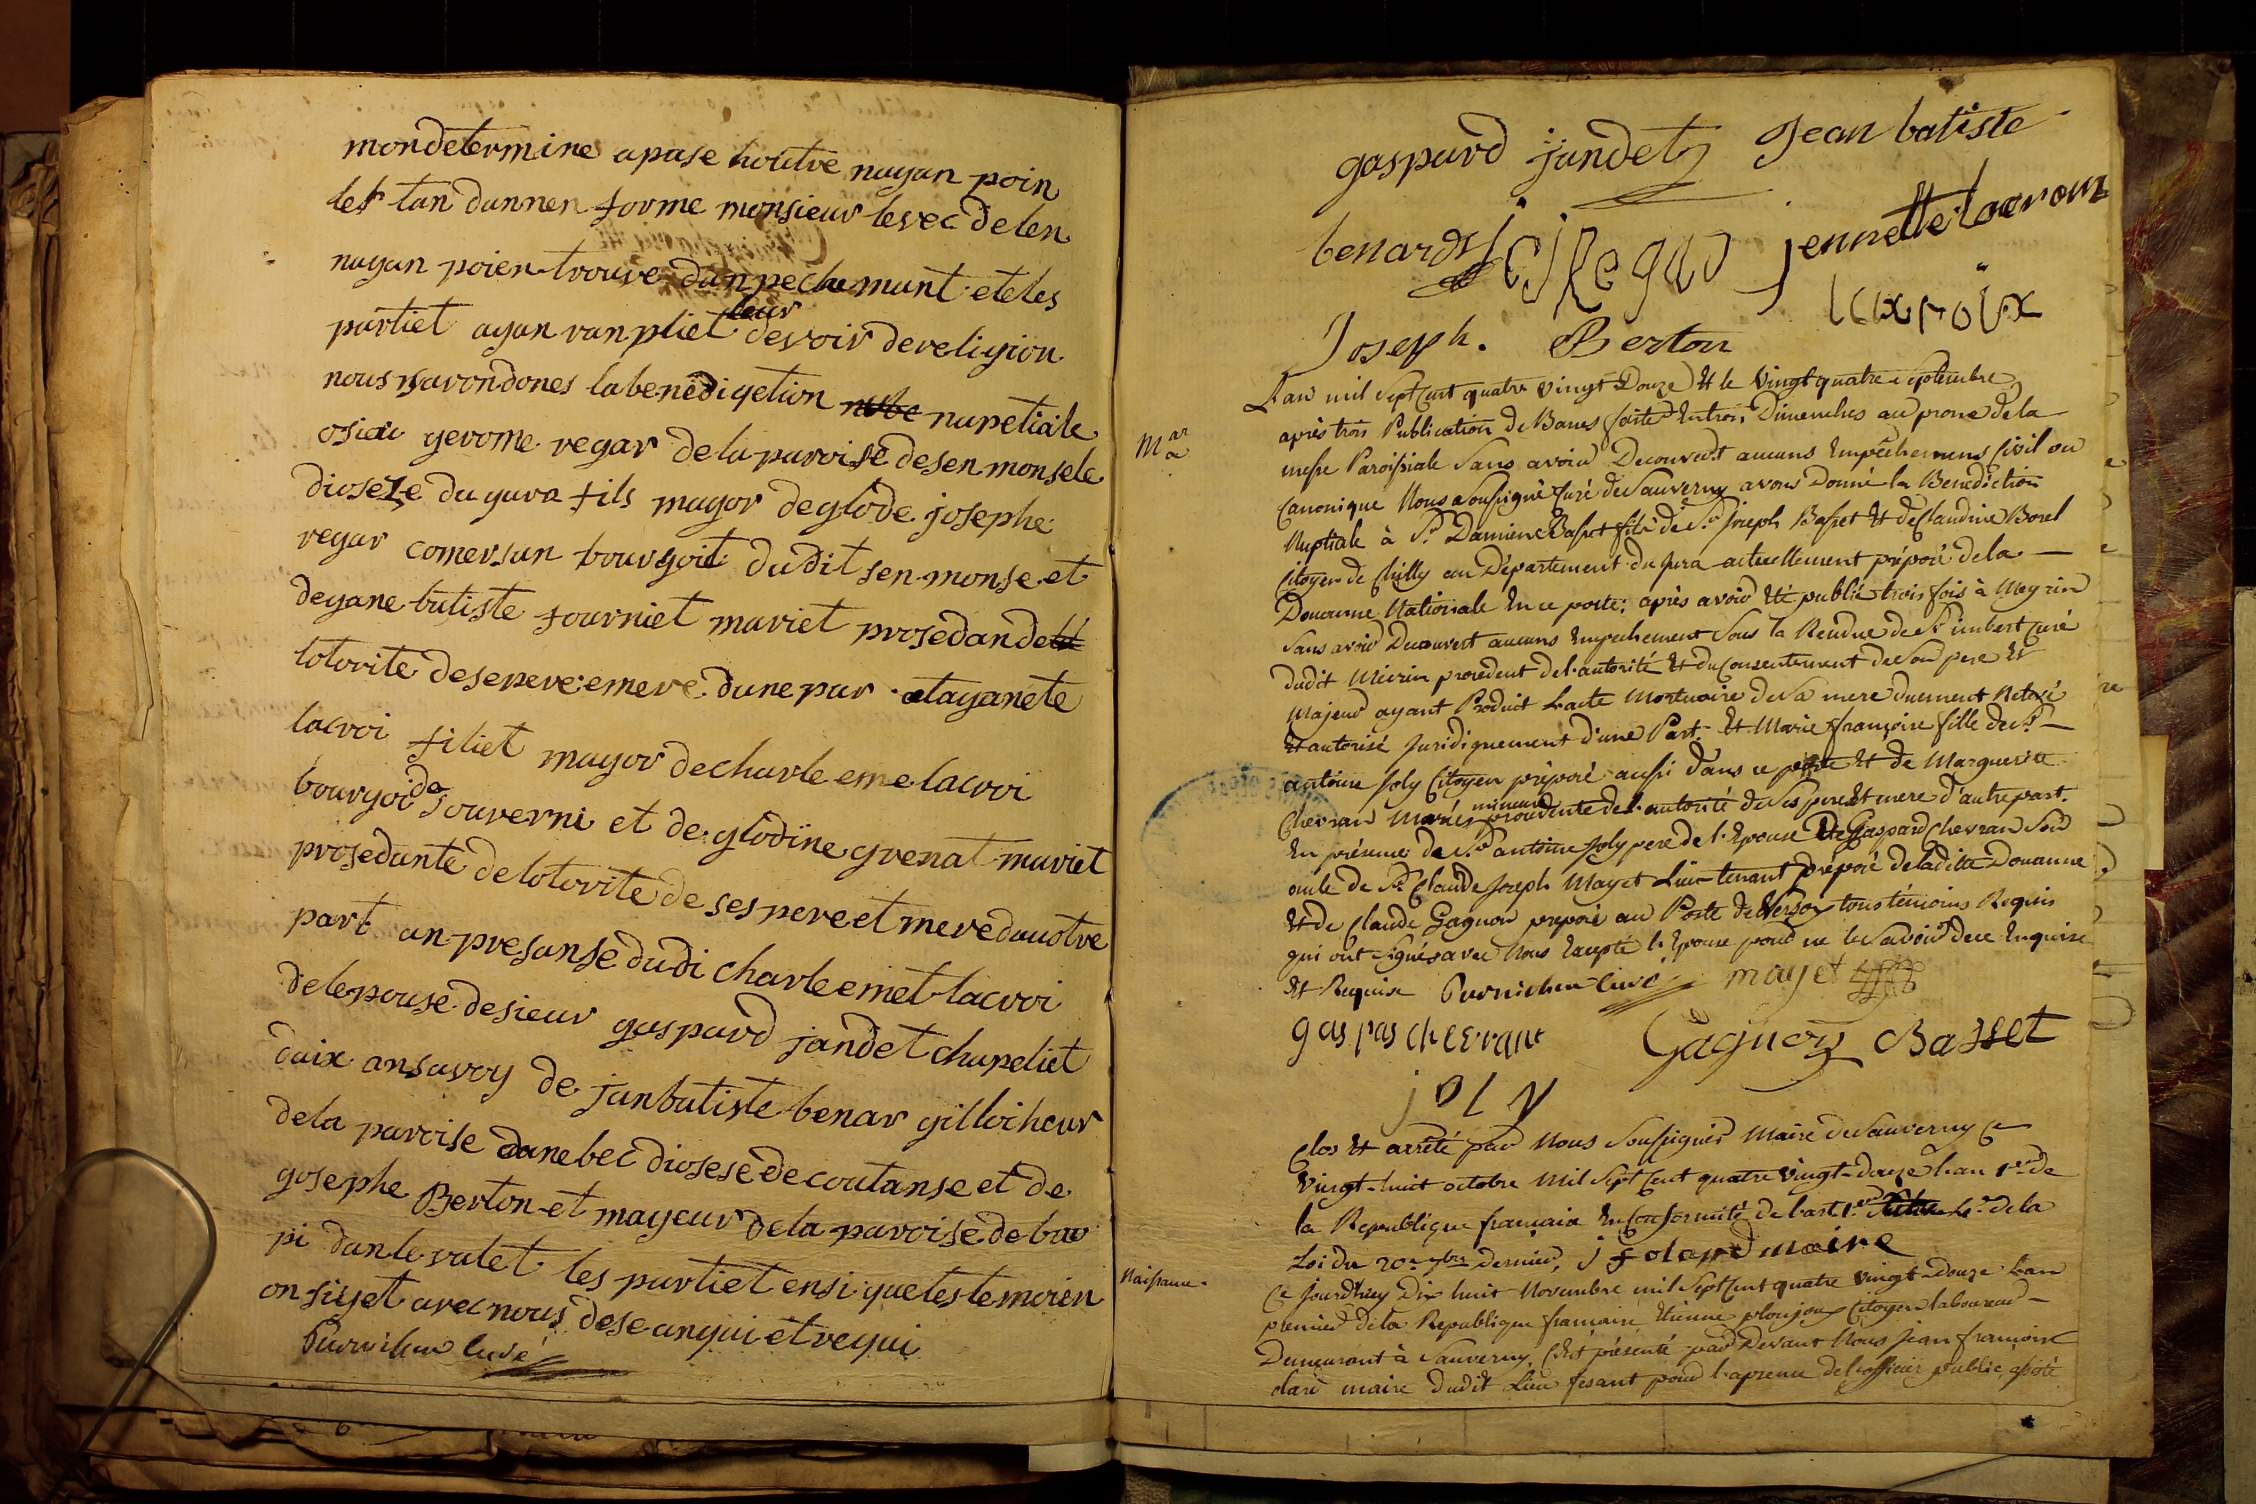 mondetermine apase houtre nayan poin
let tan dannen forme monsieur levec delen
nayan poien trouve danpechemant et eles
partiet ayan ranpliet leur devoir de religion
nous navondones la benedigetion nupetiale
osieu yerome regar de la paroise desen monsele
dioseze du yura fils mayor deglode josephe
regar comersan bourgoit dudit sen monse et
deyane batiste fourniet mariet prosedande
lotorite desepere emere dune par atayanete
lacroi filiet mayor decharle eme lacroi
bouryoi de souverni et de glodine grenat mariet
prosedante delotorite de ses pere et mere dauotre
part an presanse dudi charle emet lacroi
delepouse desieur gaspard jandet chapeliet
daix ansavoy de janbatiste benar gilloiheur
dela paroise danebec diosese de coutanse et de
gosephe Berton et mayeur dela paroise de bou
pi danlevalet les partiet ensi que les temoien
on siyet avec nous dese anqui et requi
Purnichen curé
gaspard jandet Jean batiste
benard j c j Regad jennette lacroix
lacroix
Joseph. Berton
Mar
L'an mil Sept Cent quatre vingt Douze Et le Vingt quatre Septembre
après trois Publication de Banes faite Entrois Dimenches au prone de la
messe Paroissiale Sans avoir Decouvert aucuns Empêchemens Civil ou
Canonique Nous Soussigné Curé de Sauverny avons Donné la Benediction
Nuptiale à Sr. Damien Basset fils de Sr. Joseph Basset Et de Claudine Borel
Citoyen de Chilly au Département du Jura actuellement préposé de la
Douanne Nationale En ce poste; après avoir Eté publié trois fois à Meyrin
Sans avoir Decouvert aucuns Empechement Sous la Rendue de Sr. imbert Curé
dudit Meirin procedent de l'autorité Et du Consentement de Son pere Et
Majeur ayant Produit L'acte Mortuaire de Sa mere duement
Et autorisé Juridiquement d'une Part Et Marie françoise fille de Sr.
antoine Joly Citoyen préposé aussi dans ce poste Et de Marguerite
Chevran Mariés mineure procedente de l'autorité de Ses pere Et mere d'autre part.
En présence de Sr. antoine Joly pere de l'Epouse De Gaspard Chevran Son
oncle de Sr. Claude Joseph Mayet Lieutenant préposé de laditte Douanne
Et de Claude Gagnon preposé au Poste de Versoy tous témoins Requis
qui ont Signés avec Nous Excepté l'Epouse pour ne le Savoir dece Enquise
Et Requise Purnichen curé mayet
gas pas chevrant Gagnon Basset
joly
Clos Et arrêté par Nous Soussignés Maire de Sauverny Ce
Vingt-huit octobre Mil Sept Cent quatre Vingt-douze L'an 1er de
la Republique française En Conformité de l'art 1er 4e de la
Loi du 20e 7bre Dernier, j f olard maire
Naissance.
Ce jourdhuy Dix huit Novembre mil Sept Cent quatre Vingt-Douze L'an
premier de la Republique française Etienne ploujoux Citoyen laboureur
Demeurant à Sauverny, S'est présenté par Devant Nous Jean francois
maire dudit Lieu fesant pour l'apsence de l'officier public,